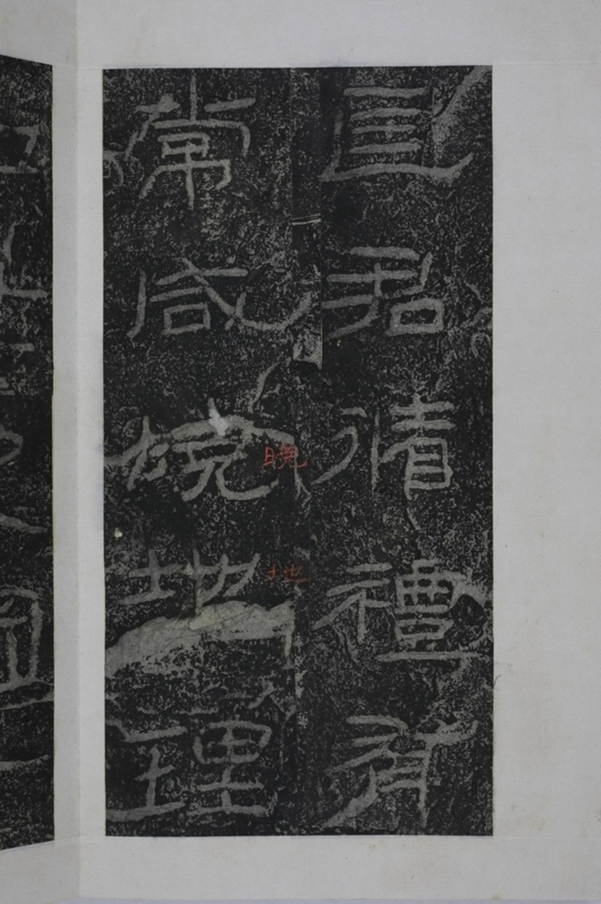 匡君循禮有
常咸曉地理
曉
地